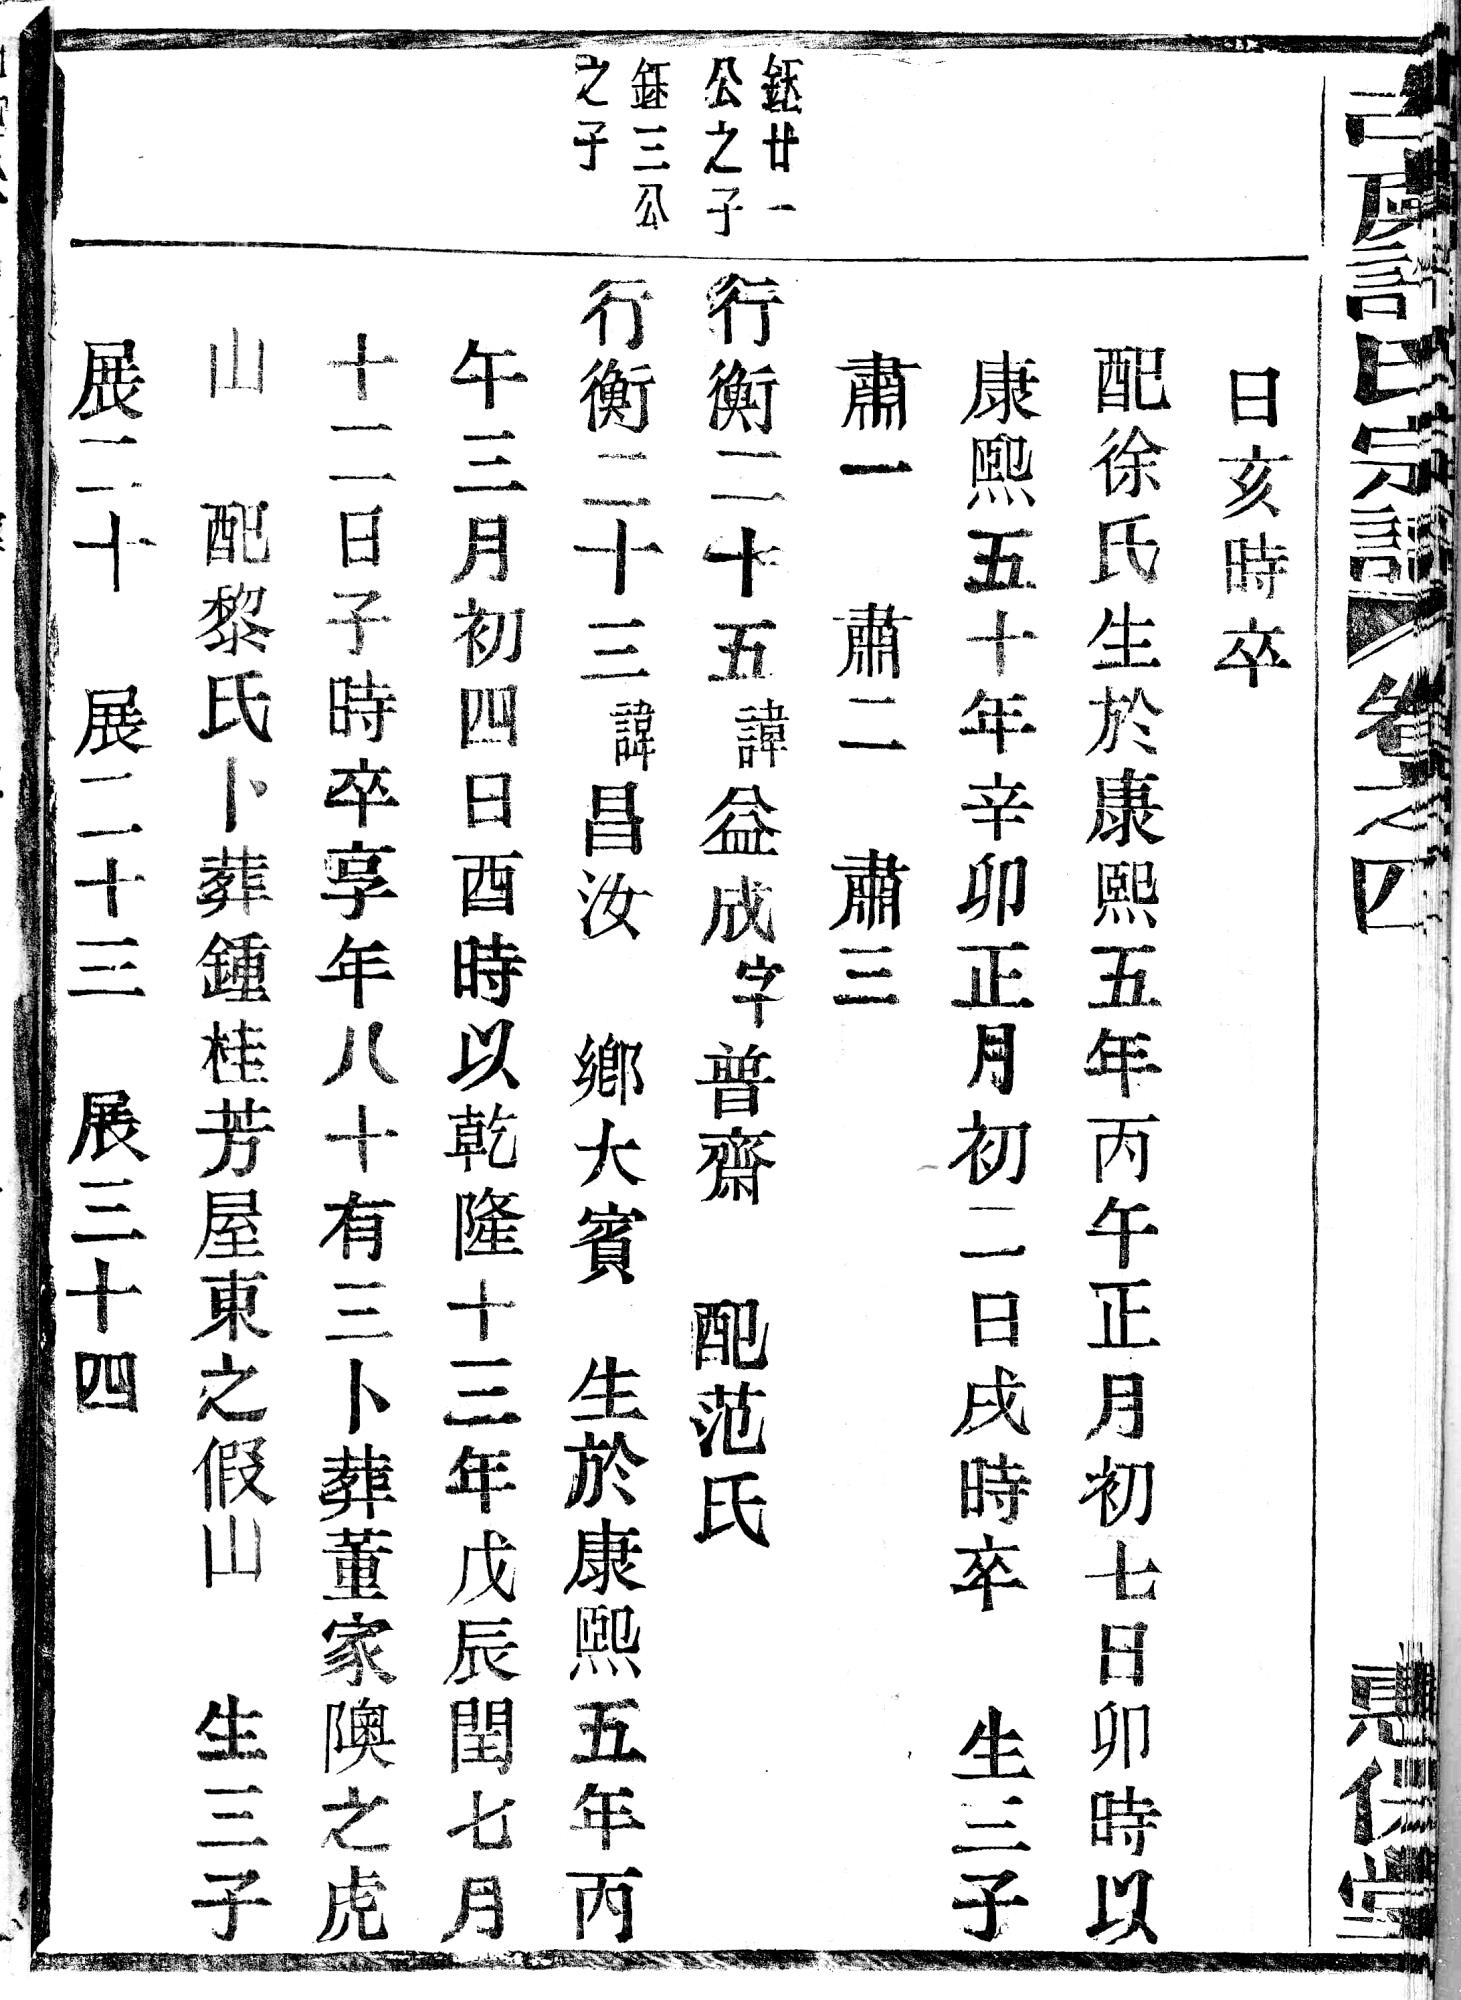 虞許氏宗譜 卷之四 惠保堂
日亥時卒
配徐氏生於康熙五年丙午正月初七日卯時以
康熙五十年辛卯正月初二日戌時卒 生三子
肅一 肅二 肅三
鈺廿一
公之子
行衡二十五諱益成字普齋 配范氏
鈺三公
之子
行衡二十三諱昌汝 鄉大賓 生於康熙五年丙
午三月初四日酉時以乾隆十三年戊辰閏七月
十二日子時卒享年八十有三卜葬董家隩之虎
山 配黎氏卜葬鍾桂芳屋東之假山 生三子
展二十 展二十三 展三十四